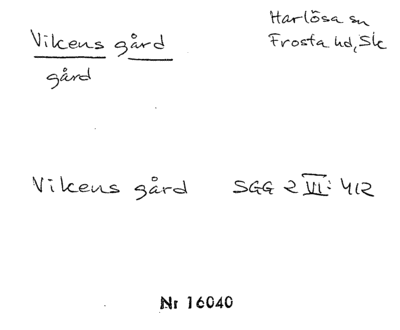 Vikens gård
gård
Harlösa sn
Frosta hd, Sk
Vikens gård SGG 2 VI: 412
Nr 16040